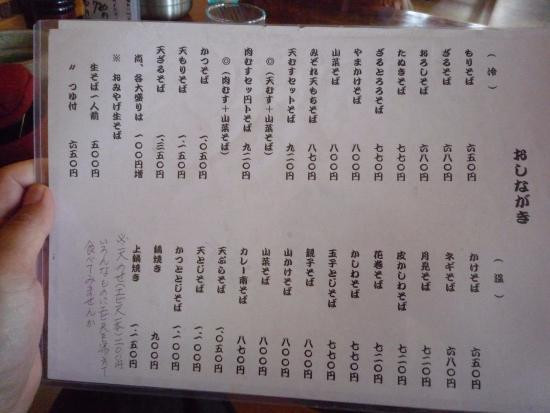 おしながき
(冷)
もりそば 六五〇円
ざるそば 六八〇円
おろしそば 六八〇円
たぬきそば 七七〇円
ざるとろろそば 七七〇円
やまかけそば 八〇〇円
山菜そば 八〇〇円
みぞれ天もちそば 八七〇円
天むすセットそば 九二〇円
◎(天むす+山菜そば)
肉むすセット円トそば 九二〇円
◎(肉むす+山菜そば)
かつそば 一、〇五〇円
天もりそば 一、一五〇円
天ざるそば 一、三五〇円
尚、各大盛りは 一〇〇円増
※ おみやげ生そば
生そば一人前 五〇〇円
〃 つゆ付 六五〇円
(温)
かけそば 六五〇円
ネギそば 六八〇円
月見そば 七二〇円
皮かしわそば 七二〇円
花巻そば 七二〇円
かしわそば 七七〇円
玉子とじそば 七七〇円
親子そば 八〇〇円
山かけそば 八〇〇円
山菜そば 八〇〇円
カレー南そば 八七〇円
天ぷらそば 一、〇五〇円
天とじそば 一、一〇〇円
かつととじそば 一、一〇〇円
鍋焼き 九〇〇円
上鍋焼き 一、二五〇円
※天のせ(エビ天一本)二〇〇円
いろんなものに天を落して
食べてみませんか